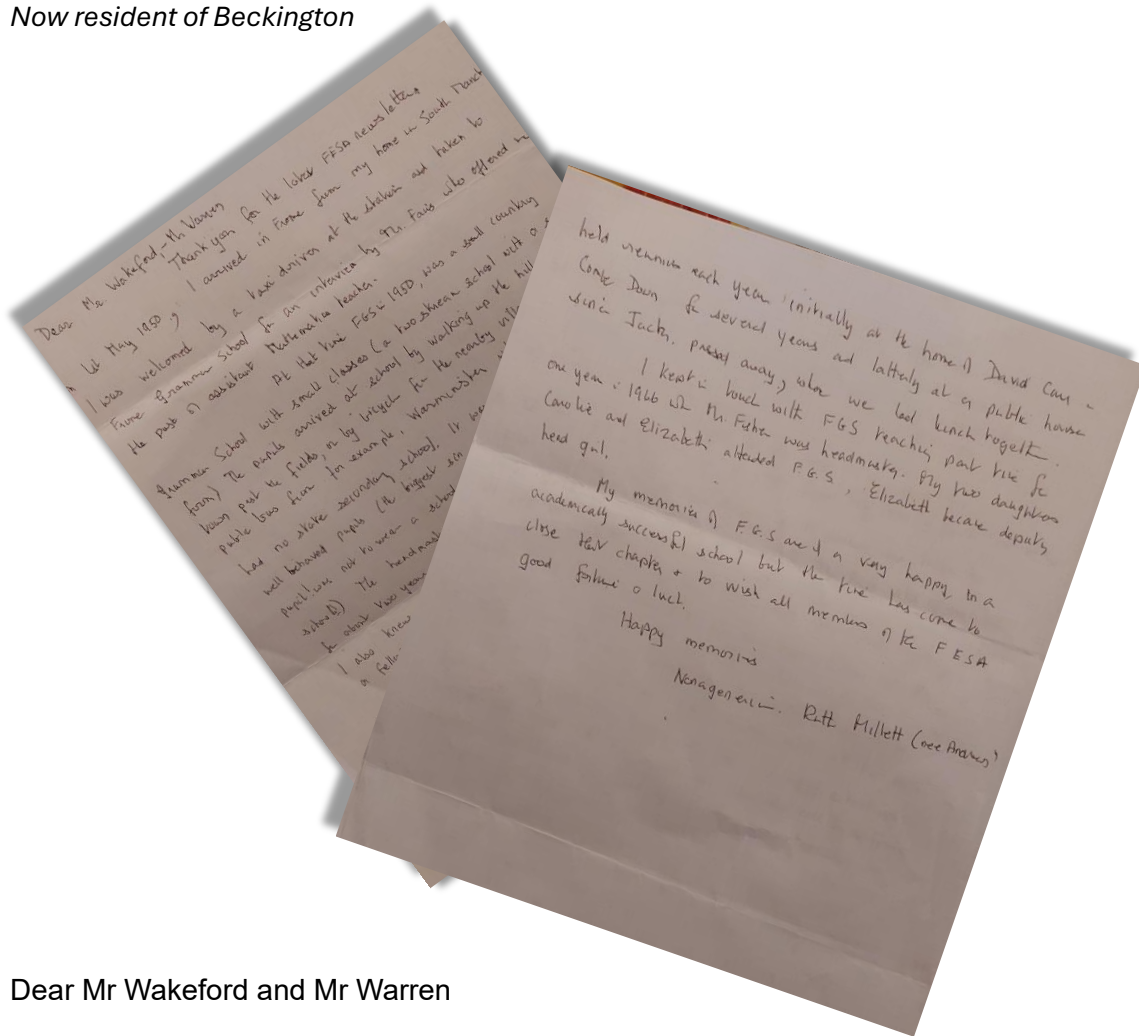 Now resident of Beckington
Dear Mr. Wakeford, Mr Warren
Thank you for the latest FESA newsletter.
1st May 1950, I arrived in Frome from my home in South
I was welcomed by a taxi driver at the station and taken to
Frome Grammar School for an interview by Mr. who offered me
the post of assistant Mathematics teacher.
At that time FGS in 1950, was a small country
Grammar School with small classes (a two stream school with a
form) The pupils arrived at school by walking up the hill
town past the fields, or by bicycle for the nearby
public bus from for example, Warminster
had no state secondary school. It
well behaved pupils (the biggest sin
pupil was not to wear a school
school!) The
about two years
I also knew
a
held reunions each year initially at the home of David
Down for several years and latterly at a public house
Jack passed away, when we had lunch together.
I kept in touch with FGS teaching part time for
one year in 1966 when Mr. Fisher was headmaster. My two daughters
Caroline and Elizabeth attended F.G.S, Elizabeth became deputy
head girl.
My memories of F.G.S are of a very happy, in a
academically successful school but the time has come to
close that chapter & to wish all members of the FESA
good fortune & luck.
Happy memories
Nonagenarian. Ruth Millett (nee
Dear Mr Wakeford and Mr Warren